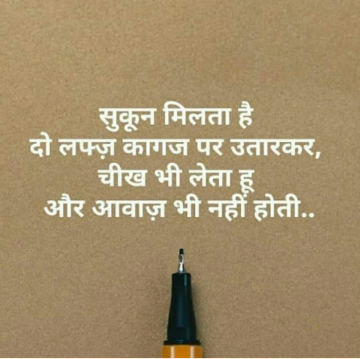 सुकून मिलता है
दो लफ्ज़ कागज पर उतारकर,
चीख भी लेता हू
और आवाज़ भी नहीं होती..